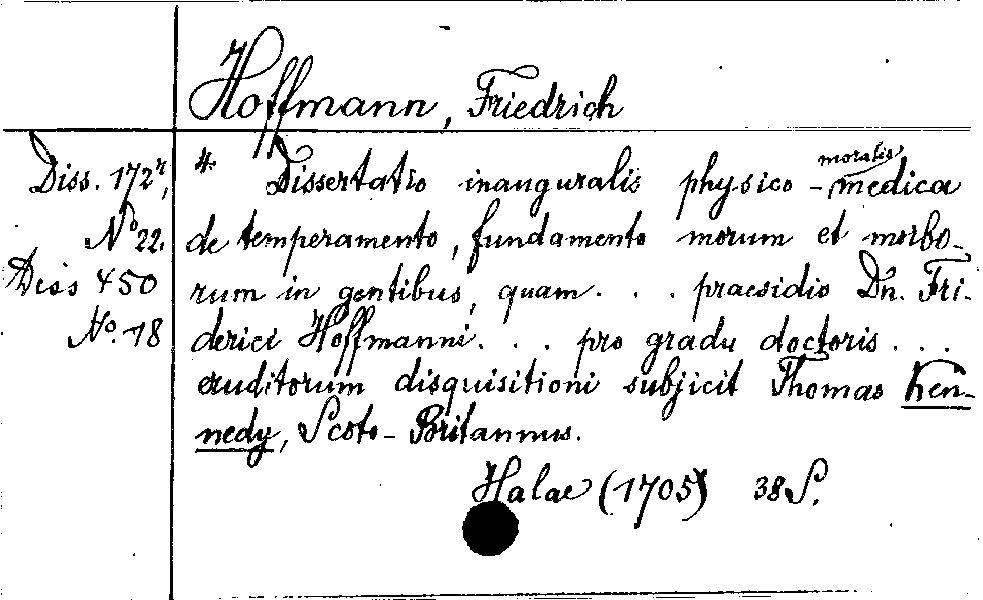 Hoffmann, Friedrich
Diss. 172r,
No 22.
Diss 450
No. 18
4. Dissertatio inauguralis physico - medica
moralis
de temperamento, fundamento morum et morbo-
rum in gentibus, quam . . . praesidio Dn. Fri-
derici Hoffmanni . . . pro gradu doctoris . . .
eruditorum disquisitioni subjicit Thomas Ken-
nedy, Scoto - Britannus.
Halae (1705) 38 S.